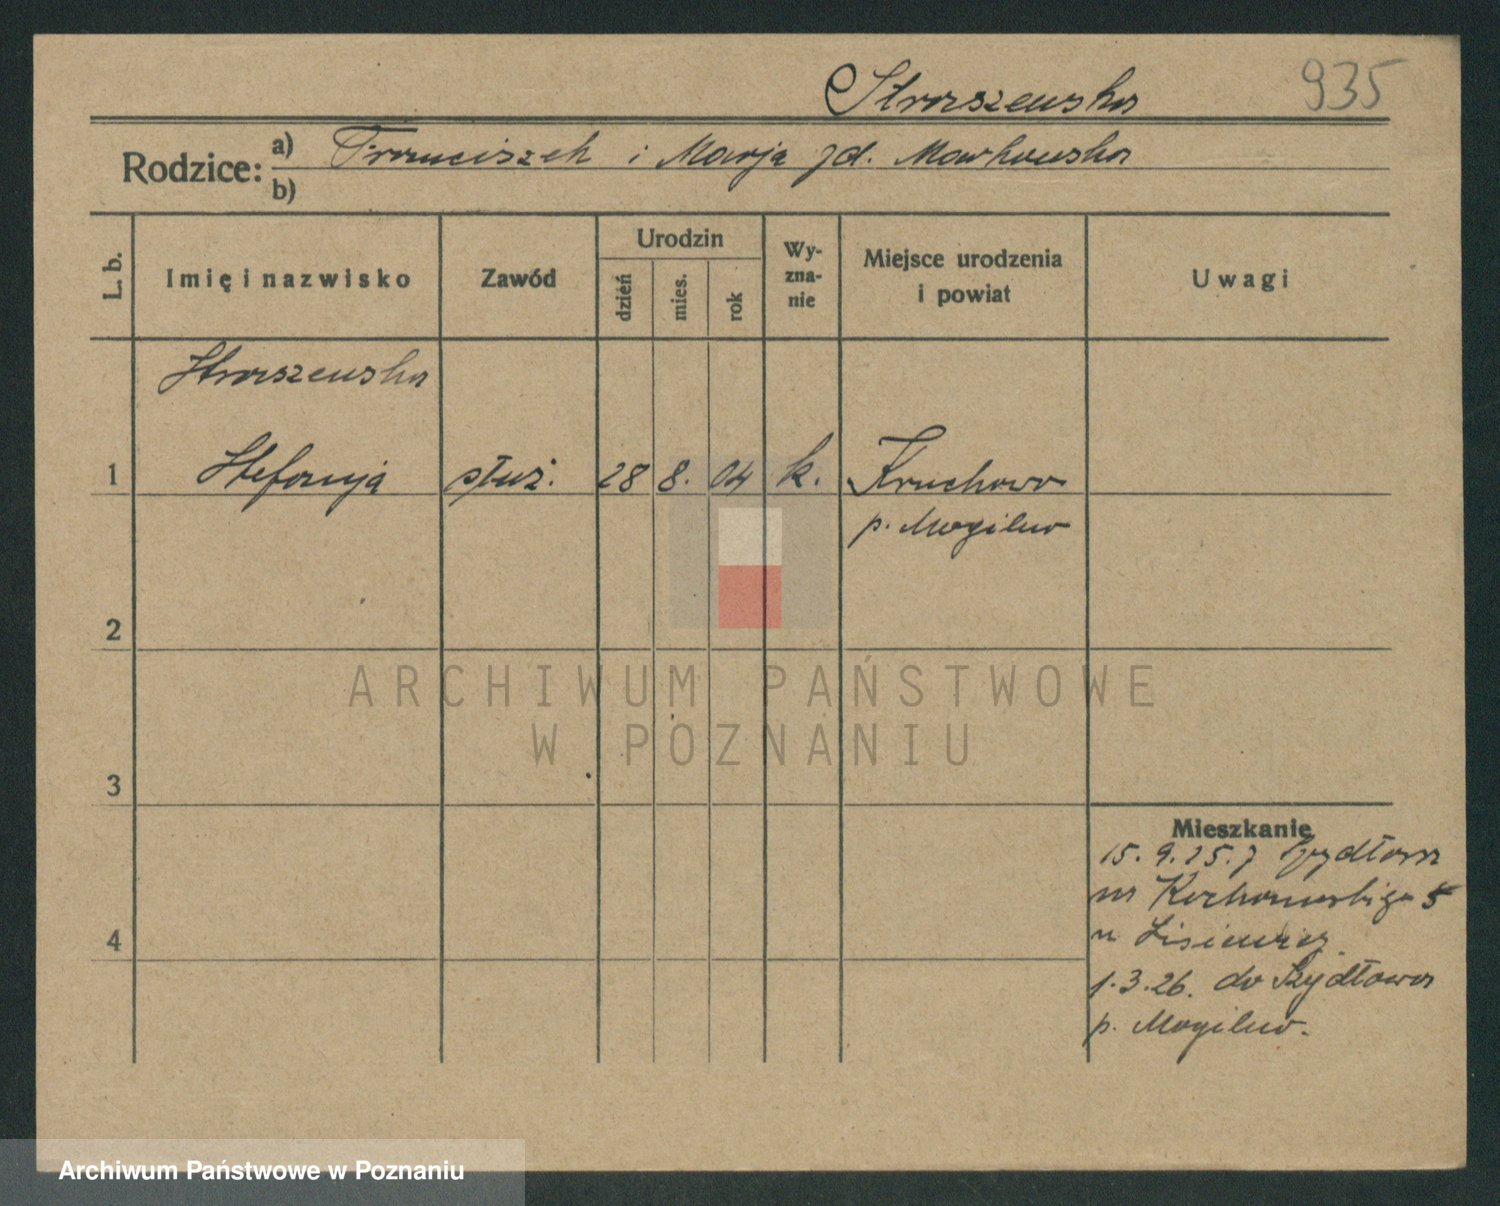 Straszewska 935
Rodzice: a) Franciszek i Marja zd. Markowska
b)
L. b. Imię i nazwisko Zawód Urodzin dzień mies. rok Wy-zna-nie Miejsce urodzenia i powiat Uwagi
Straszewska
1 Stefanja służ. 28 8. 04 k. Kruchowo
p. Mogilno
2
3
4
Mieszkanie
15. 9. 25. z Szydłowa
na 5
u
1. 3. 26. do Szydłowa
p. Mogilno.
ARCHIWUM PAŃSTWOWE
W POZNANIU
Archiwum Państwowe w Poznaniu